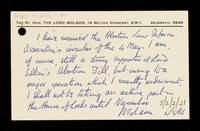 The Rt. Hon. THE LORD MOLSON, 18 Wilton Crescent, S.W.1. BELGRAVIA
I have received the Abortion Law Reform
Association's circular of the 4 May. I am,
of course still a strong supporter of Lord
Silkin's Abortion Bill, but owing to a
major operation which I recently underwent,
I shall not be taking an active part in
the House of Lords until November
Molson